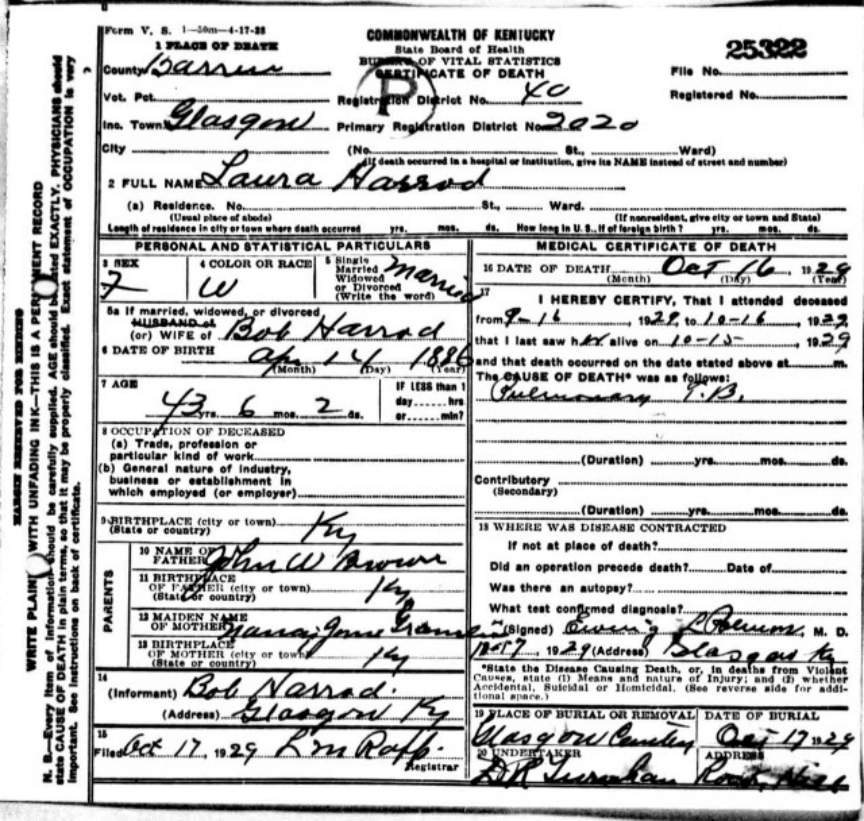 Form V. S. 1—50m—4-17-28
COMMONWEALTH OF KENTUCKY
State Board of Health
BUREAU OF VITAL STATISTICS
CERTIFICATE OF DEATH
P
25322
File No.
Registered No.
1 PLACE OF DEATH
County Barren
Vot. Pct. Registration District No. 40
Inc. Town Glasgow Primary Registration District No. 2020
City (No. St., Ward)
(If death occurred in a hospital or institution, give its NAME instead of street and number)
2 FULL NAME Laura Harrod
(a) Residence. No. St., Ward.
(Usual place of abode) (If nonresident, give city or town and State)
Length of residence in city or town where death occurred yrs. mos. ds. How long in U. S., if of foreign birth? yrs. mos. ds.
PERSONAL AND STATISTICAL PARTICULARS
3 SEX
F
4 COLOR OR RACE
W
5 Single
Married
Widowed
or Divorced
(Write the word)
Married
5a If married, widowed, or divorced
HUSBAND of
(or) WIFE of Bob Harrod
6 DATE OF BIRTH Apr 14 1886
(Month) (Day) (Year)
7 AGE
43 yrs. 6 mos. 2 ds.
IF LESS than 1
day hrs
or min?
8 OCCUPATION OF DECEASED
(a) Trade, profession or
particular kind of work
(b) General nature of industry,
business or establishment in
which employed (or employer)
9 BIRTHPLACE (city or town) Ky
(State or country)
PARENTS
10 NAME OF
FATHER John W Brown
11 BIRTHPLACE
OF FATHER (city or town) Ky
(State or country)
12 MAIDEN NAME
OF MOTHER
13 BIRTHPLACE
OF MOTHER (city or town) Ky
(State or country)
14
(Informant) Bob Harrod
(Address) Glasgow Ky
15
Filed Oct 17, 1929
Registrar
MEDICAL CERTIFICATE OF DEATH
16 DATE OF DEATH Oct 16, 1929
(Month) (Day) (Year)
17
I HEREBY CERTIFY, That I attended deceased
from 9-16, 1929, to 10-16, 1929,
that I last saw her alive on 10-15, 1929
and that death occurred on the date stated above at m.
The CAUSE OF DEATH* was as follows:
Pulmonary T.B.
(Duration) yrs. mos. ds.
Contributory
(Secondary)
(Duration) yrs. mos. ds.
18 WHERE WAS DISEASE CONTRACTED
If not at place of death?
Did an operation precede death? Date of
Was there an autopsy?
What test confirmed diagnosis?
(Signed) M. D.
1929 (Address) Glasgow Ky
*State the Disease Causing Death, or, in deaths from Violent
Causes, state (1) Means and nature of Injury; and (2) whether
Accidental, Suicidal or Homicidal. (See reverse side for addi-
tional space.)
19 PLACE OF BURIAL OR REMOVAL
Glasgow
DATE OF BURIAL
Oct 17 1929
20 UNDERTAKER
ADDRESS
MARGIN RESERVED FOR BINDING
WRITE PLAINLY WITH UNFADING INK—THIS IS A PERMANENT RECORD
N. B.—Every item of information should be carefully supplied. AGE should be stated EXACTLY. PHYSICIANS should
state CAUSE OF DEATH in plain terms, so that it may be properly classified. Exact statement of OCCUPATION is very
important. See instructions on back of certificate.